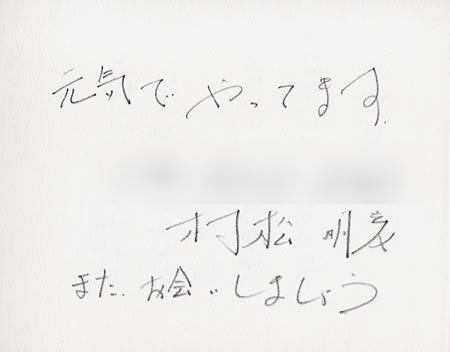 元気でやってます
村松 明彦
また お会いしましょう